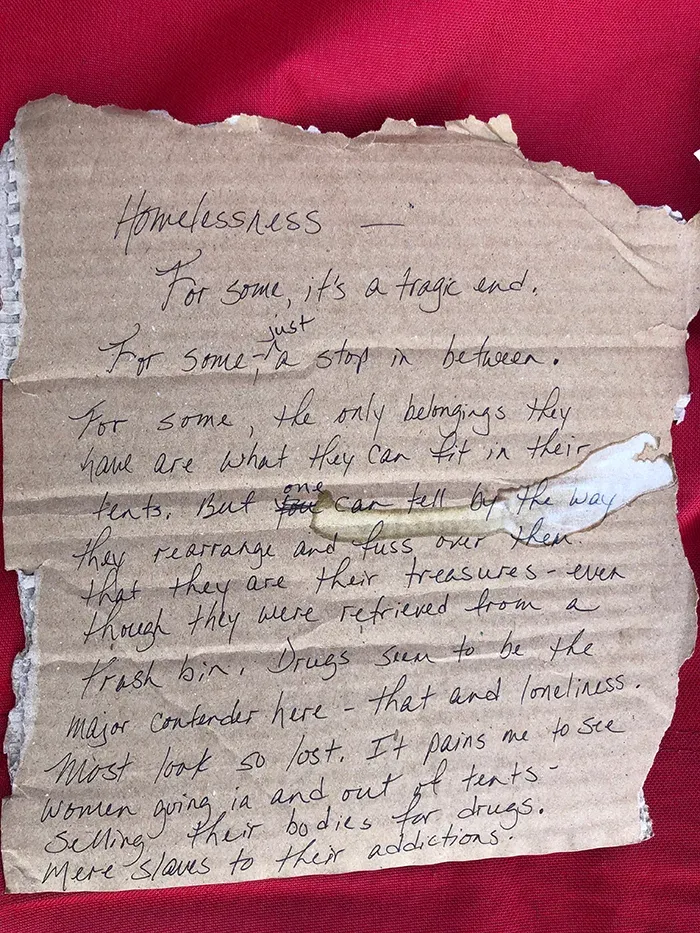 Homelessness —
For some, it's a tragic end.
For some, just a stop in between.
For some, the only belongings they
have are what they can fit in their
tents. But one can tell by the way
they rearrange and fuss over them
that they are their treasures - even
though they were retrieved from a
trash bin. Drugs seem to be the
major contender here - that and loneliness.
Most look so lost. It pains me to see
women going in and out of tents -
selling their bodies for drugs.
Mere slaves to their addictions.